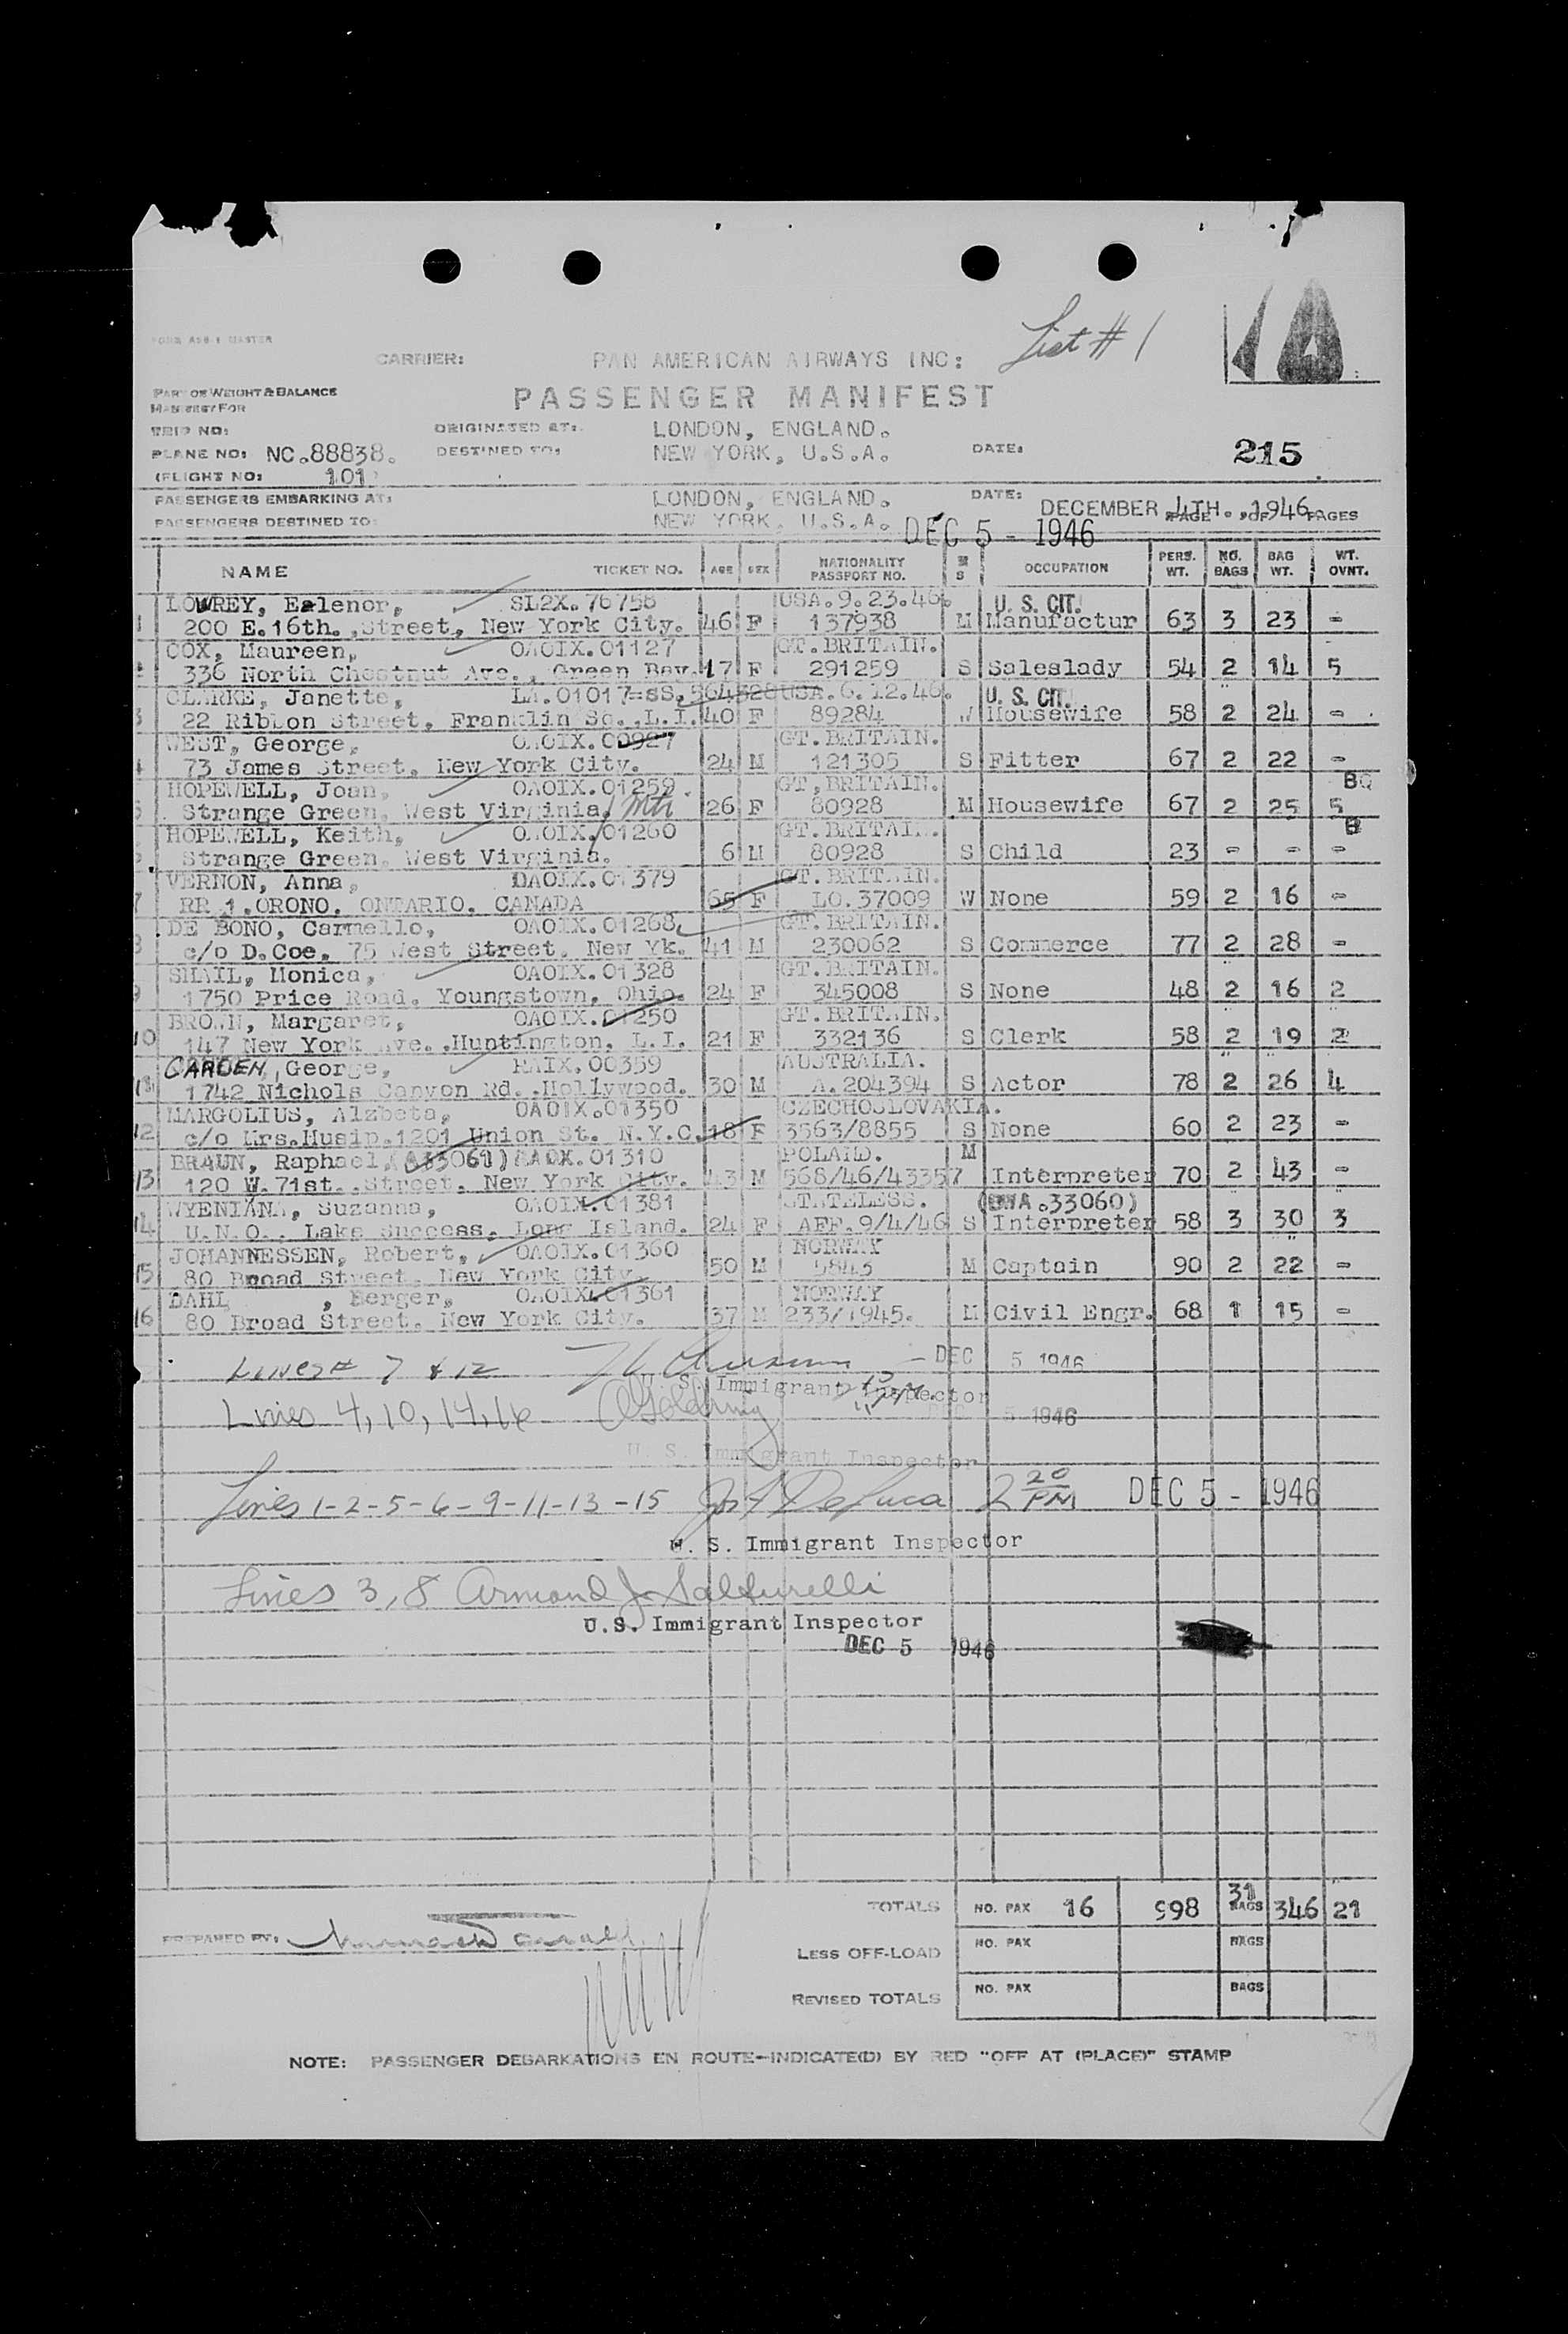 FORM ASB-1 MASTER
List # 1
CARRIER: PAN AMERICAN AIRWAYS INC:
PART OF WEIGHT & BALANCE
MANIFEST FOR
PASSENGER MANIFEST
TRIP NO: ORIGINATED AT: LONDON, ENGLAND.
PLANE NO: NC.88838. DESTINED TO: NEW YORK, U.S.A. DATE: 215
(FLIGHT NO: 101)
PASSENGERS EMBARKING AT: LONDON, ENGLAND. DATE: DECEMBER 4TH., 1946.
PASSENGERS DESTINED TO: NEW YORK, U.S.A. PAGE OF PAGES
DEC 5 - 1946
NAME TICKET NO. AGE SEX NATIONALITY PASSPORT NO. M S OCCUPATION PERS. WT. NO. BAGS BAG WT. WT. OVNT.
LOWREY, Ealenor, SL2X.76758 USA.9.23.46. U. S. CIT.
1 200 E.16th.,Street, New York City. 46 F 137938 M Manufactur 63 3 23 -
COX, Maureen, OAOIX.01127 GT.BRITAIN.
2 336 North Chestnut Ave., Green Bay. 17 F 291259 S Saleslady 54 2 14 5
CLARKE, Janette, LA.01017=SS.564328 USA.6.12.46. U. S. CIT.
3 22 Ribbon Street, Franklin Sq.,L.I. 40 F 89284 W Housewife 58 2 24 -
WEST, George, OAOIX.00927 GT.BRITAIN.
4 73 James Street, New York City. 24 M 121305 S Fitter 67 2 22 -
HOPEWELL, Joan, OAOIX.01259. GT.BRITAIN. BQ
5 Strange Green, West Virginia. 26 F 80928 M Housewife 67 2 25 5
HOPEWELL, Keith, OAOIX.01260 GT.BRITAIN. B
6 Strange Green, West Virginia. 6 M 80928 S Child 23 - - -
VERNON, Anna, OAOIX.01379 GT.BRITAIN.
7 RR 1.ORONO. ONTARIO. CANADA 65 F LO.37009 W None 59 2 16 -
DE BONO, Carmello, OAOIX.01268. GT.BRITAIN.
8 c/o D.Coe, 75 West Street, New Yk. 41 M 230062 S Commerce 77 2 28 -
SMAIL, Monica, OAOIX.01328 GT.BRITAIN.
9 1750 Price Road, Youngstown, Ohio. 24 F 345008 S None 48 2 16 2
BROWN, Margaret, OAOIX.01250 GT.BRITAIN.
10 147 New York Ave.,Huntington, L.I. 21 F 332136 S Clerk 58 2 19 2
CARDEN, George, RAIX.00359 AUSTRALIA.
11 1742 Nichols Canyon Rd.,Hollywood. 30 M A.204394 S Actor 78 2 26 4
MARGOLIUS, Alzbeta, OAOIX.01350 CZECHOSLOVAKIA.
12 c/o Mrs.Husip.1201 Union St. N.Y.C. 18 F 3563/8855 S None 60 2 23 -
BRAUN, Raphael, 01310 POLAND. M
13 120 W.71st. Street. New York City. 43 M 568/46/43357 Interpreter 70 2 43 -
WYENIANA, Suzanna, OAOIX.01381 STATELESS. 33060)
14 U.N.O., Lake Success, Long Island. 24 F AFF.9/4/46 S Interpreter 58 3 30 3
JOHANNESSEN, Robert, OAOIX.01360 NORWAY
15 80 Broad Street, New York City 50 M 9843 M Captain 90 2 22 -
DAHL , Berger, OAOIX.01361 NORWAY
16 80 Broad Street, New York City. 37 M 233/1945. M Civil Engr. 68 1 15 -
Lines # 7 & 12 DEC 5 1946
U. S. Immigrant Inspector
Lines 4, 10, 14, 16 Golding DEC 5 1946
U. S. Immigrant Inspector
Lines 1-2-5-6-9-11-13-15 Jos F DeLuca 2 20 PM DEC 5 - 1946
U. S. Immigrant Inspector
Lines 3, 8 Armand J. Salturelli
U.S. Immigrant Inspector
DEC 5 1946
TOTALS NO. PAX 16 998 31 BAGS 346 21
PREPARED BY:
LESS OFF-LOAD NO. PAX BAGS
REVISED TOTALS NO. PAX BAGS
NOTE: PASSENGER DEBARKATIONS EN ROUTE-INDICATE(D) BY RED "OFF AT (PLACE)" STAMP